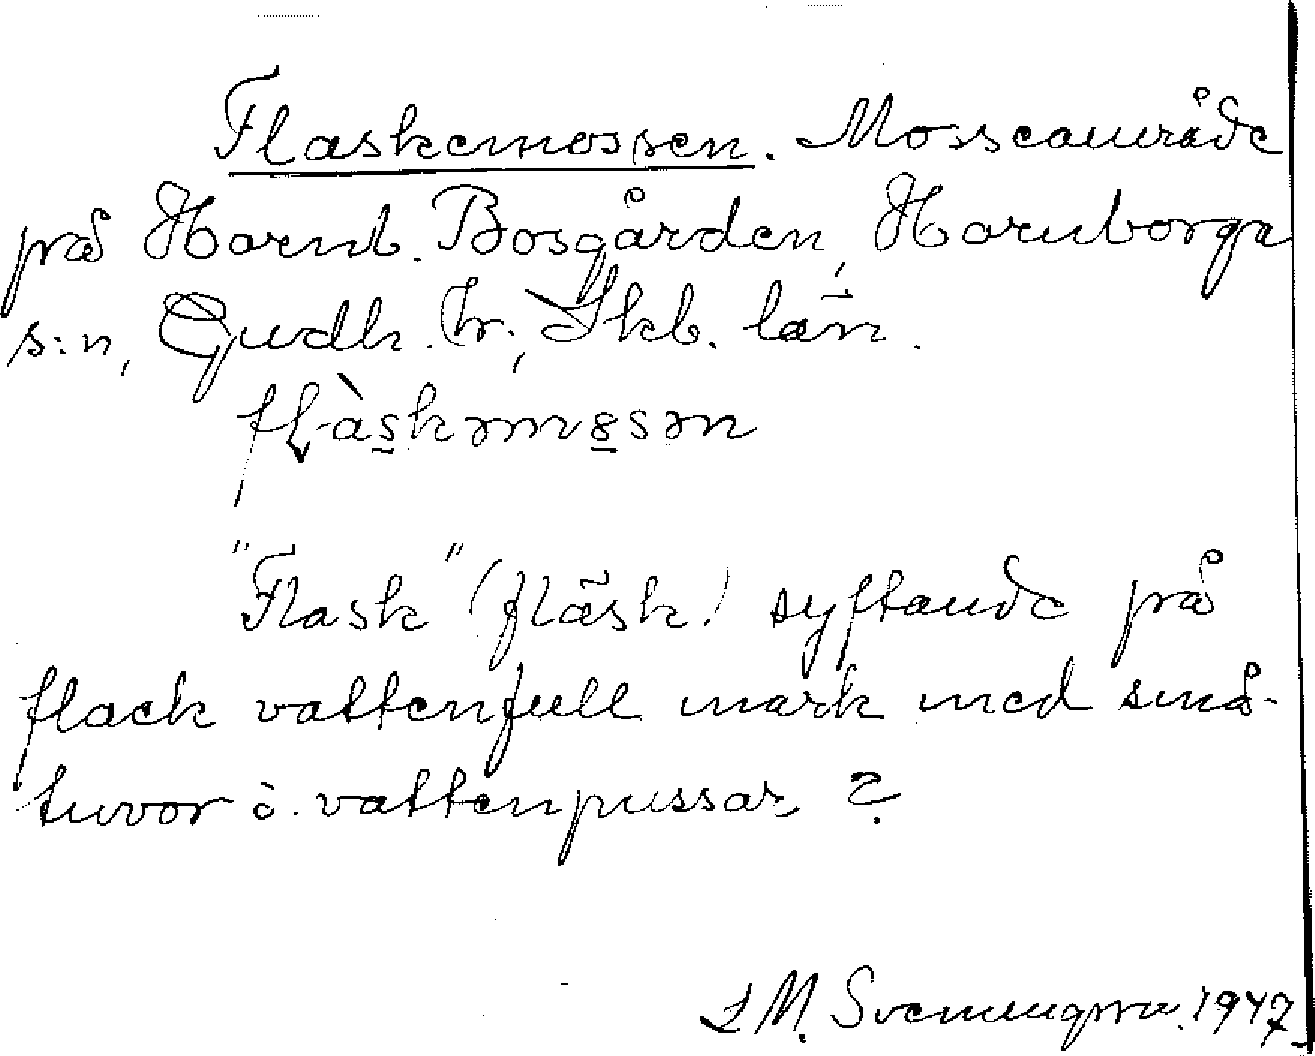 Flaskemossen. Mosseområde
på Hornb. Bosgården, Hornborga
s:n, Gudh. hr; Skb. län.
"Flask" (fläsk) syftande på
flack vattenfull mark med små-
tuvor o. vattenpussar?
S M. Svenungsson. 1947